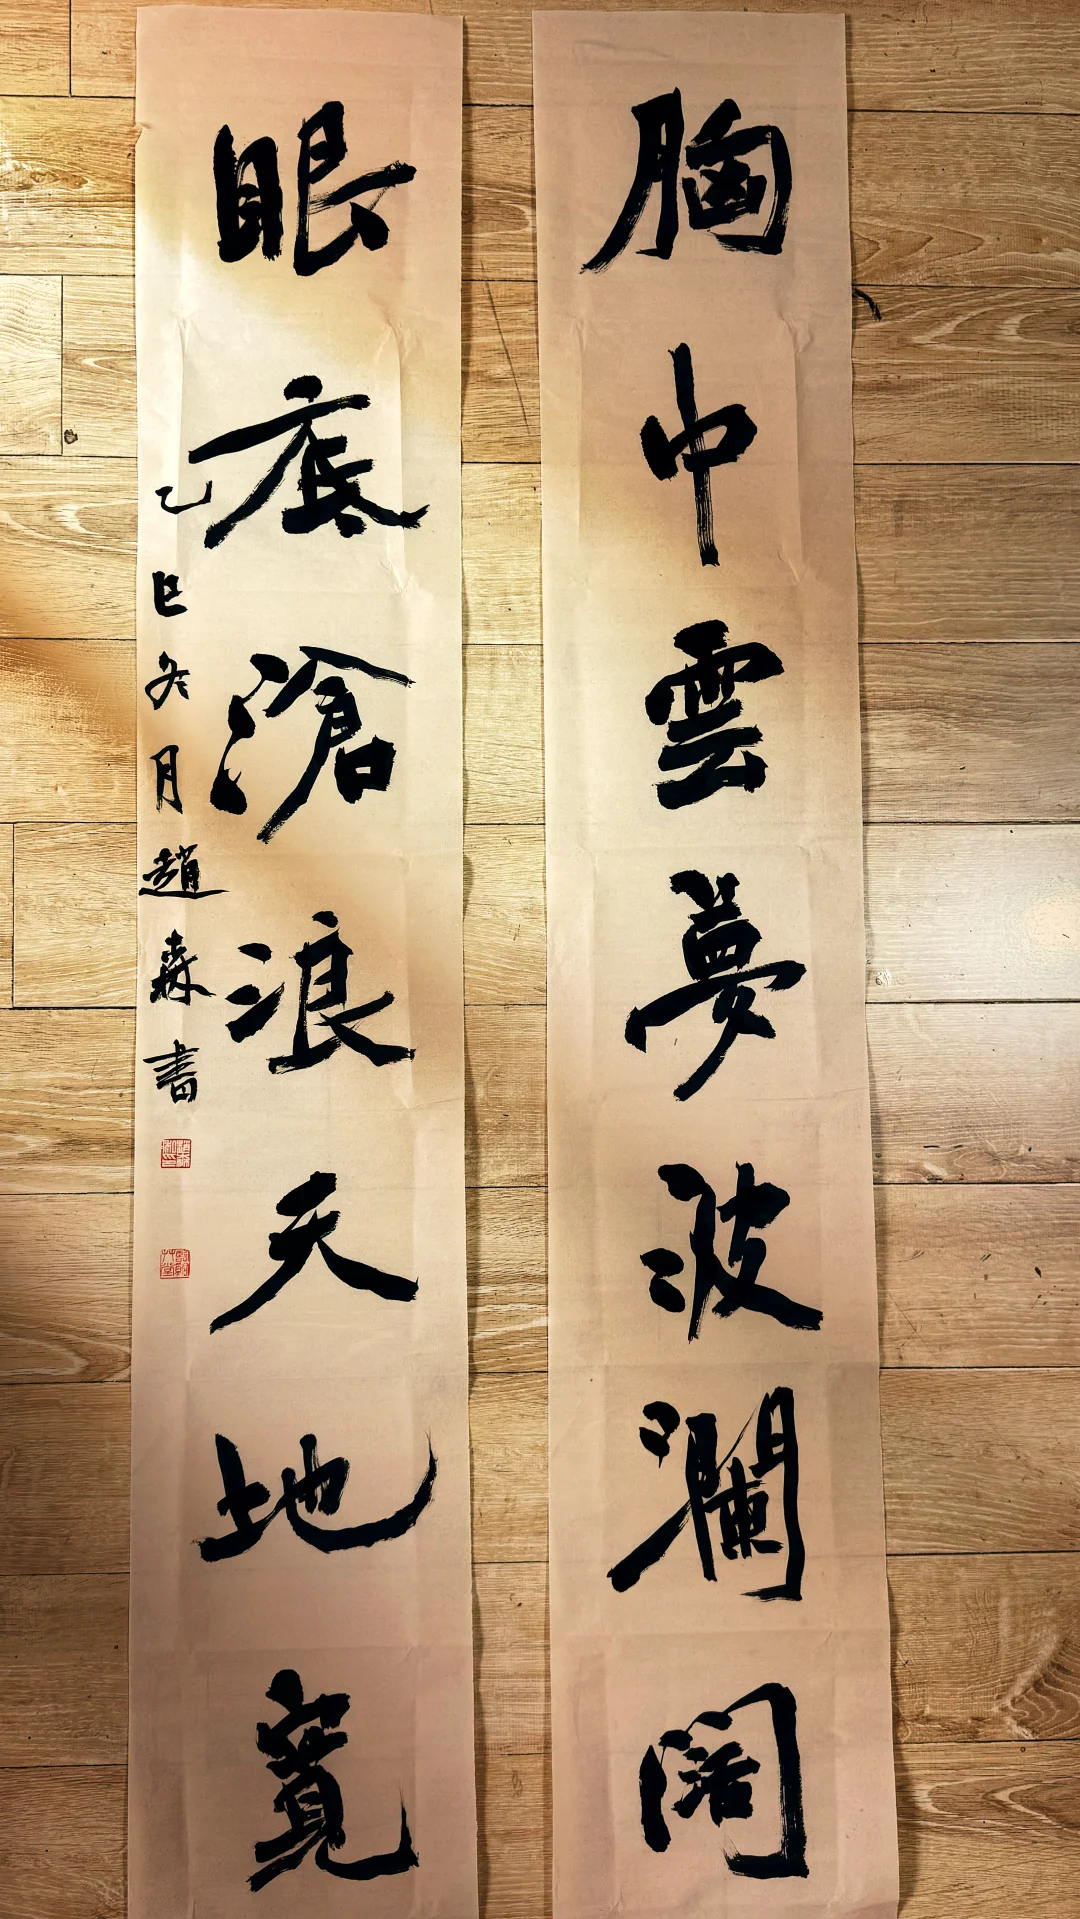 胸中雲夢波瀾闊
眼底滄浪天地寬
乙巳冬月趙森書